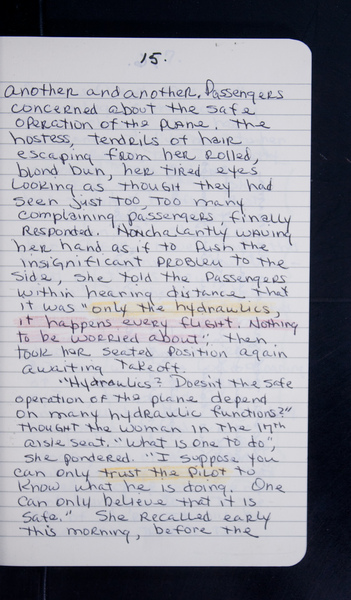 15.
another and another. Passengers
concerned about the safe
operation of the plane. The
hostess, tendrils of hair
escaping from her rolled,
blond bun, her tired eyes
looking as though they had
seen just too, too many
complaining passengers, finally
responded. Nonchalantly waving
her hand as if to push the
insignificant problem to the
side, she told the passengers
within hearing distance that
it was "only the hydraulics,
it happens every flight. Nothing
to be worried about", then
took her seated position again
awaiting takeoff.
"Hydraulics? Doesn't the safe
operation of the plane depend
on many hydraulic functions?"
thought the woman in the 17th
aisle seat. "What is one to do",
she pondered. "I suppose you
can only trust the pilot to
know what he is doing. One
can only believe that it is
safe." She recalled early
this morning, before the